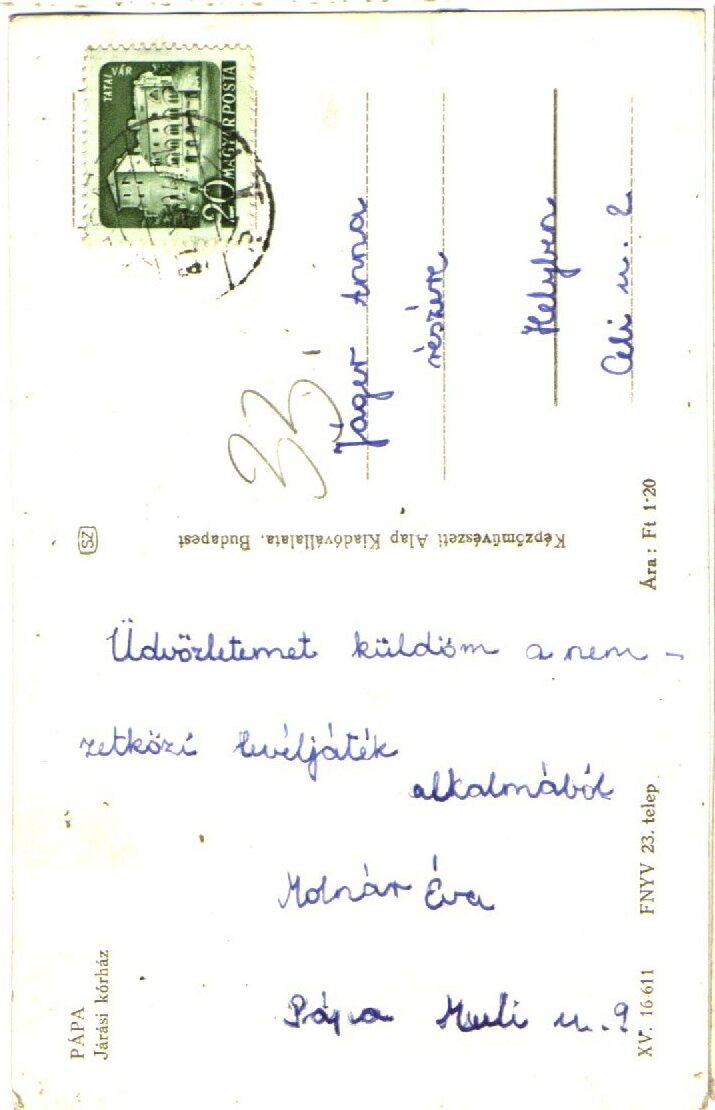 TATAI VÁR
20 MAGYAR POSTA
33
Jáger Anna
részére
Helyben
Celi u. 2
SZ
Képzőművészeti Alap Kiadóvállalata, Budapest
Ára: Ft 1·20
Üdvözletemet küldöm a nem-
zetközi levéljáték
alkalmából
Molnár Éva
Pápa u. 9
PÁPA
Járási kórház
XV. 16-611 FNYV 23. telep